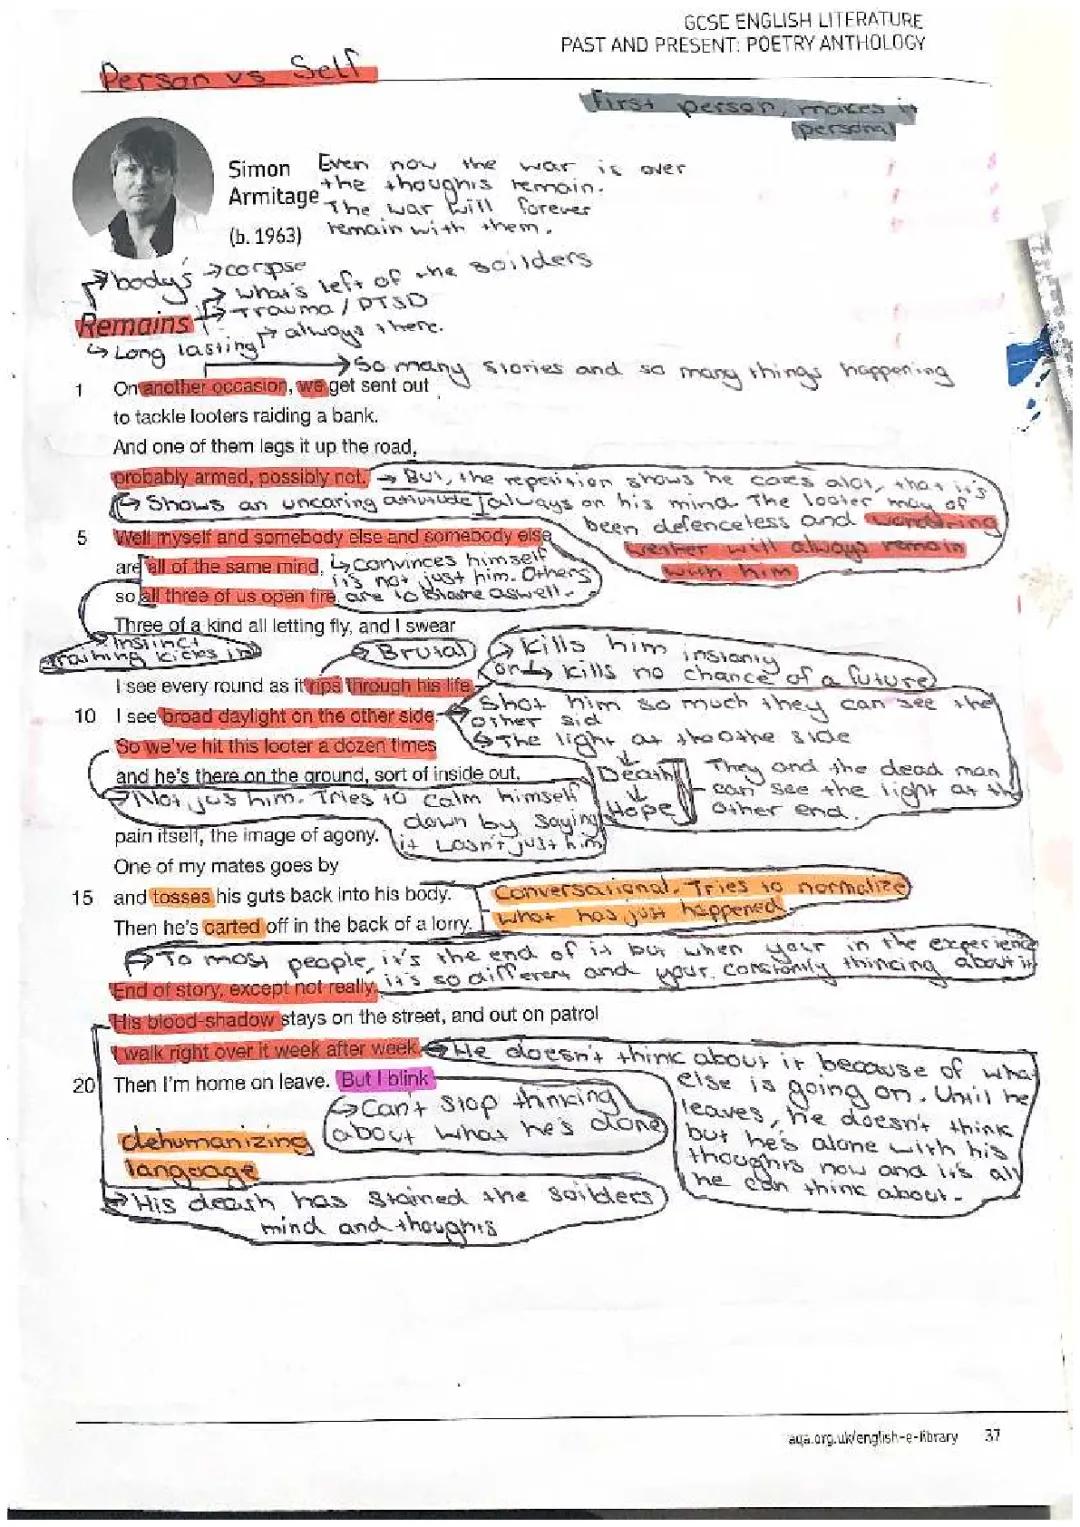 GCSE ENGLISH LITERATURE
PAST AND PRESENT: POETRY ANTHOLOGY
Person vs Self
First person, makes it
personal
Simon
Armitage
(b. 1963)
Even now the war is over
the thoughts remain.
The war will forever
remain with them.
→ body's → corpse
→ what's left of the soilders
→ Trauma / PTSD
Remains
→ always there.
↳ Long lasting
→ So many stories and so many things happening
1 On another occasion, we get sent out
to tackle looters raiding a bank.
And one of them legs it up the road,
probably armed, possibly not.
→ But, the repetition shows he cares alot, that it's
always on his mind. The looter may of
been defenceless and wondering
wether will always remain
with him
→ Shows an uncaring attitude
5 Well myself and somebody else and somebody else
are all of the same mind,
so all three of us open fire.
↳ Convinces himself
it's not just him. Others
are to blame aswell.
Three of a kind all letting fly, and I swear
→ Instinct
training kicks in
→ Brutal
→ Kills him instantly
or ↳ kills no chance of a future
I see every round as it rips through his life
10 I see broad daylight on the other side.
Shot him so much they can see the
other sid
↳ The light at the othe side
Death
Hope
They and the dead man
can see the light at the
other end.
So we've hit this looter a dozen times
and he's there on the ground, sort of inside out,
→ Not jus him. Tries to calm himself
down by saying
it wasn't just him
pain itself, the image of agony.
One of my mates goes by
15 and tosses his guts back into his body.
Then he's carted off in the back of a lorry.
Conversational. Tries to normalize
what has just happened
→ To most people, it's the end of it but when your in the experience
it's so different and your constantly thinking about it
End of story, except not really.
His blood-shadow stays on the street, and out on patrol
I walk right over it week after week.
20 Then I'm home on leave. But I blink
→ Can't stop thinking
about what he's done
He doesn't think about it because of what
else is going on. Until he
leaves, he doesn't think
but he's alone with his
thoughts now and it's all
he can think about.
dehumanizing
language
→ His death has stained the soilders
mind and thoughts
aqa.org.uk/english-e-library 37